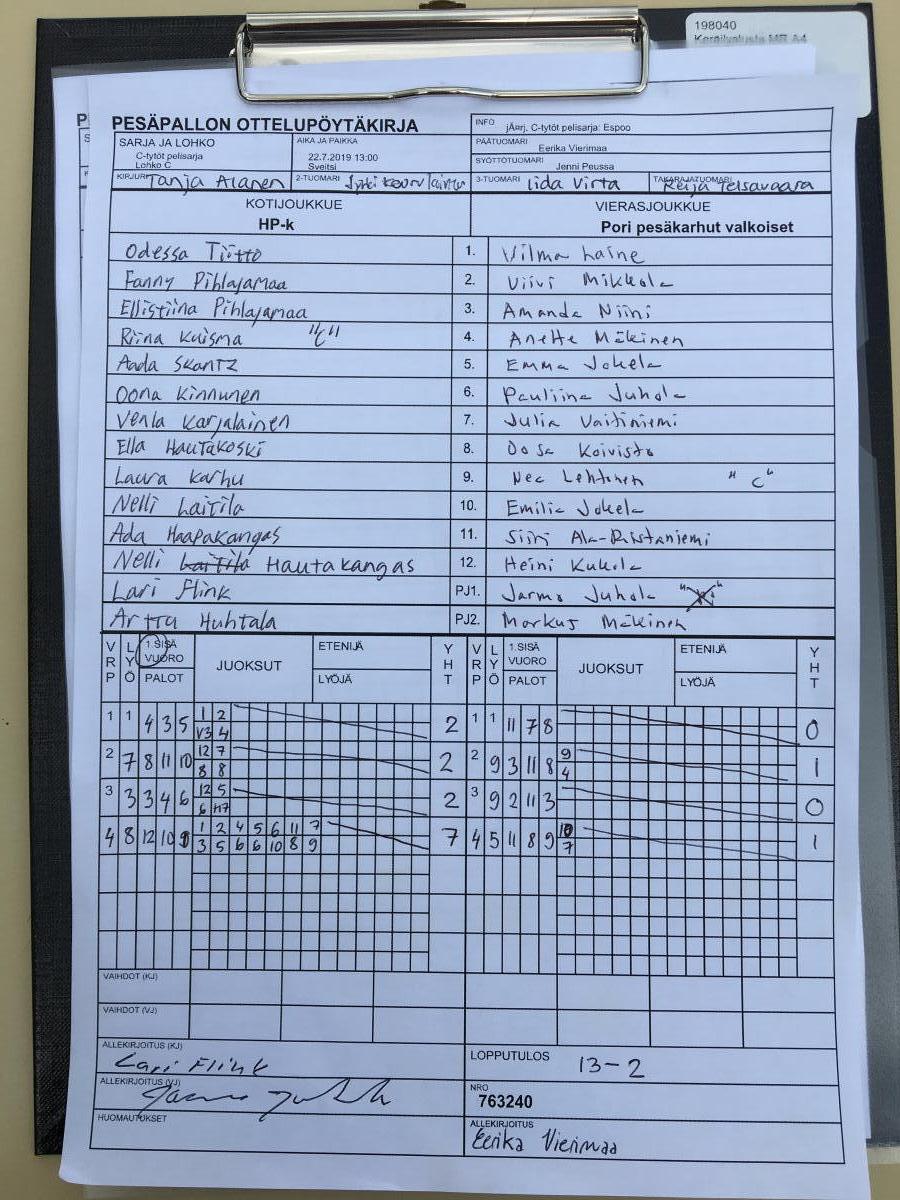 198040
Keräilyalusta MR A4
PESÄPALLON OTTELUPÖYTÄKIRJA
INFO jÄœrj, C-tytöt pelisarja: Espoo
SARJA JA LOHKO C-tytöt pelisarja Lohko C
AIKA JA PAIKKA 22.7.2019 13:00 Sveitsi
PÄÄTUOMARI Eerika Vierimaa
SYÖTTÖTUOMARI Jenni Peussa
KIRJURI Tanja Alanen 2-TUOMARI 3-TUOMARI Iida Virta TAKARAJATUOMARI Reija
KOTIJOUKKUE VIERASJOUKKUE
HP-k Pori pesäkarhut valkoiset
Odessa Tiitto 1. Vilma Laine
Fanny Pihlajamaa 2. Viivi Mikkola
Ellistiina Pihlajamaa 3. Amanda Niini
Riina Kuisma "C" 4. Anette Mäkinen
Aada Skantz 5. Emma Jokela
Oona Kinnunen 6. Pauliina Juhola
Venla Karjalainen 7. Julia Vaitiniemi
Ella Hautakoski 8. Oosa Koivisto
Laura Karhu 9. Nea Lehtonen "C"
Nelli Laitila 10. Emilia Jokela
Ada Haapakangas 11. Siiri Ala-Ristaniemi
Nelli Laitila Hautakangas 12. Heini Kukola
Lari Flink PJ1. Jarmo Juhola
Arttu Huhtala PJ2. Markus Mäkinen
VRP LYÖ 1.SISÄ VUORO PALOT JUOKSUT ETENIJÄ LYÖJÄ YHT VRP LYÖ 1.SISÄ VUORO PALOT JUOKSUT ETENIJÄ LYÖJÄ YHT
1 1 4 3 5 1 2 2 1 1 11 7 8 0
V3 4
2 7 8 11 10 12 7 2 2 9 3 11 8 9 1
8 8 4
3 3 3 4 6 12 5 2 3 9 2 11 3 0
6
4 8 12 10 9 1 2 4 5 6 11 7 7 4 5 11 8 9 10 1
3 5 6 6 10 8 9 7
VAIHDOT (KJ)
VAIHDOT (VJ)
ALLEKIRJOITUS (KJ) Lari Flink
LOPPUTULOS 13-2
ALLEKIRJOITUS (VJ)
NRO 763240
HUOMAUTUKSET
ALLEKIRJOITUS Eerika Vierimaa